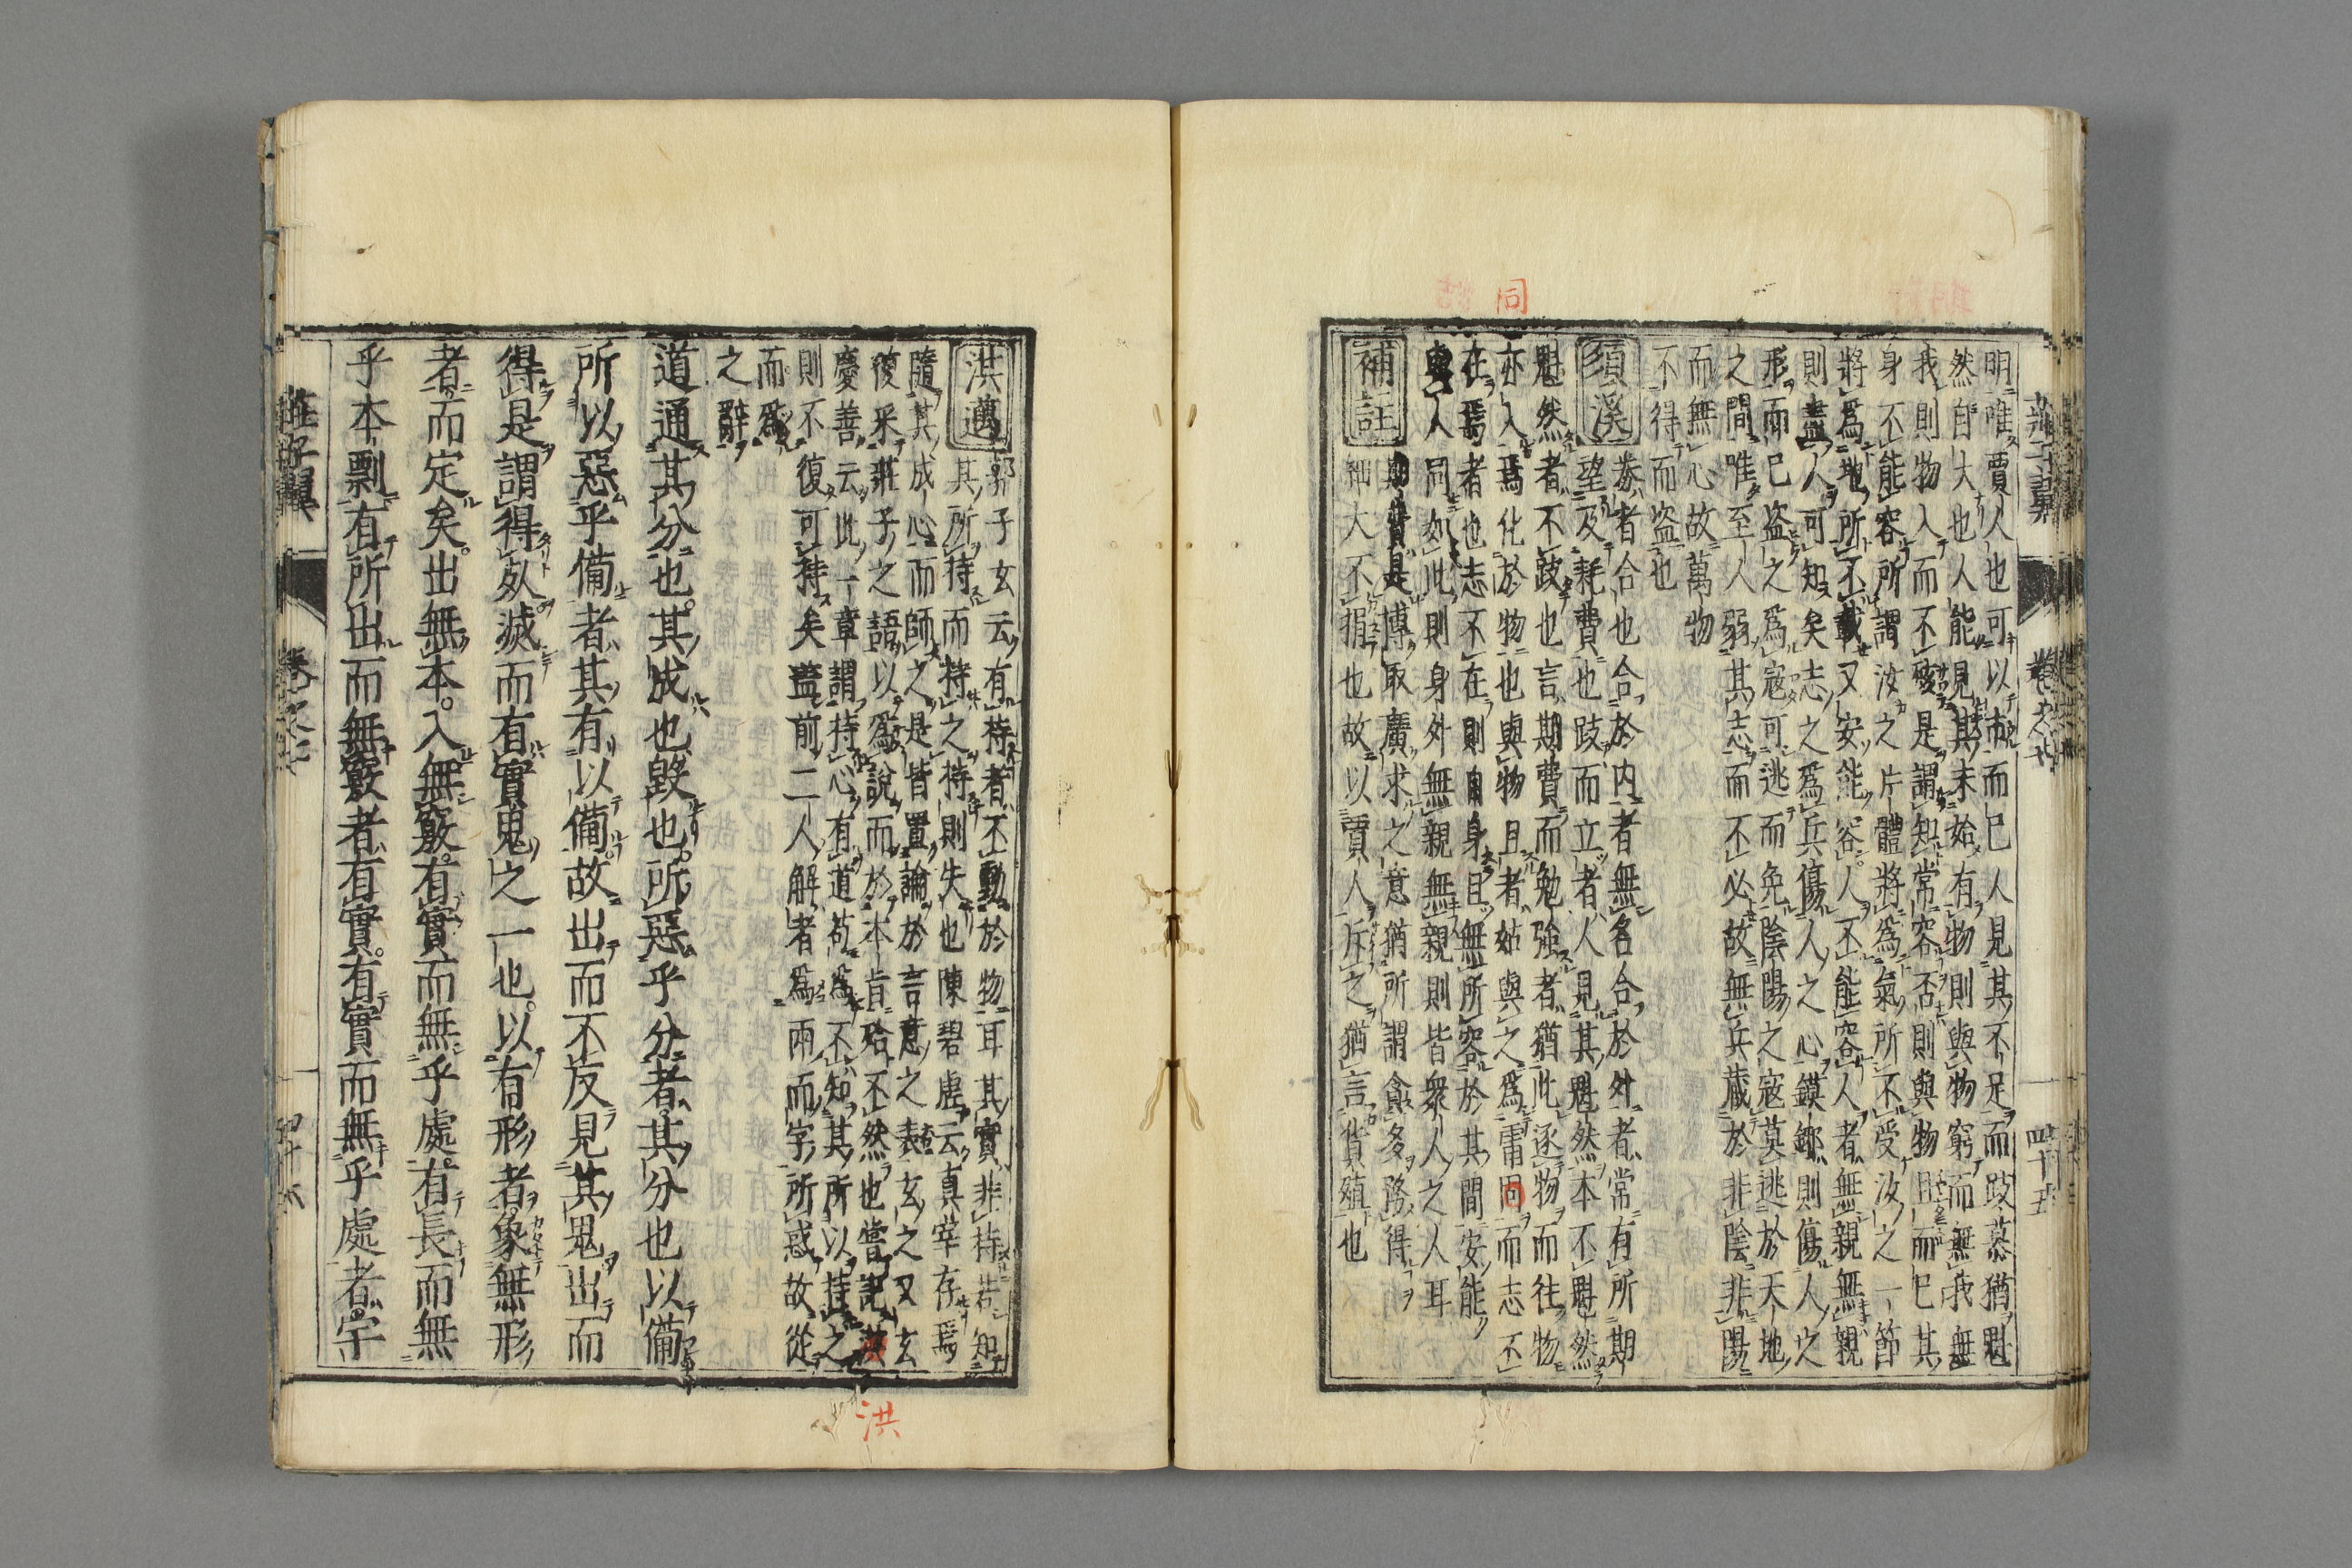 同
明唯賈人也可以市而已人見其不足而跂慕猶魁
然自大也人能見其未始有物則與物窮而無我無
我則物入而不礙是謂知常容否則與物且而已其
身不能容所謂汝之片體將為氣所不受汝之一節
將為地所不載又安能容人不能容人者無親無親
則盡人可知矣志之為兵傷人之心鏌鋣則傷人之
形而已盗之為寇可逃而免陰陽之寇莫逃於天地
之間唯至人弱其志而不必故無兵藏於非陰非陽
而無心故萬物
不得而盗也
須溪
券者合也合於内者無名合於外者常有所期
望及耗費也跂而立者人見其魁然本不魁然
魁然者不跂也言期費而勉強者猶此逐物而往物
亦入焉化於物也與物且者姑與之為雷同而志不
在焉者也志不在則自身且無所容於其間安能
與人同如此則身外無親無親則皆衆人之人耳
補註
期費是博取廣求之意猶所謂貪多務得
細大不捐也故以賈人斥之猶言貨殖也
莊子翼
卷之七
四十五
洪邁
郭子玄云有持者不動於物耳其實非持若知
其所持而持之持則失也陳碧虚云真宰存焉
隨其成心而師之是皆置論於言意之表玄之又玄
復采莊子之語以為說而於本旨殆不然也嘗記洪
慶善云此一章謂持心有道苟為不知其所以持之
則不復可持矣蓋前二人解者為兩而字所惑故從
而為
之辭
道通其分也其成也毀也所惡乎分者其分也以備
所以惡乎備者其有以備故出而不反見其鬼出而
得是謂得死滅而有實鬼之一也以有形者象無形
者而定矣出無本入無竅有實而無乎處有長而無
乎本剽有所出而無竅者有實有實而無乎處者宇
莊子翼
卷之七
四十六
洪